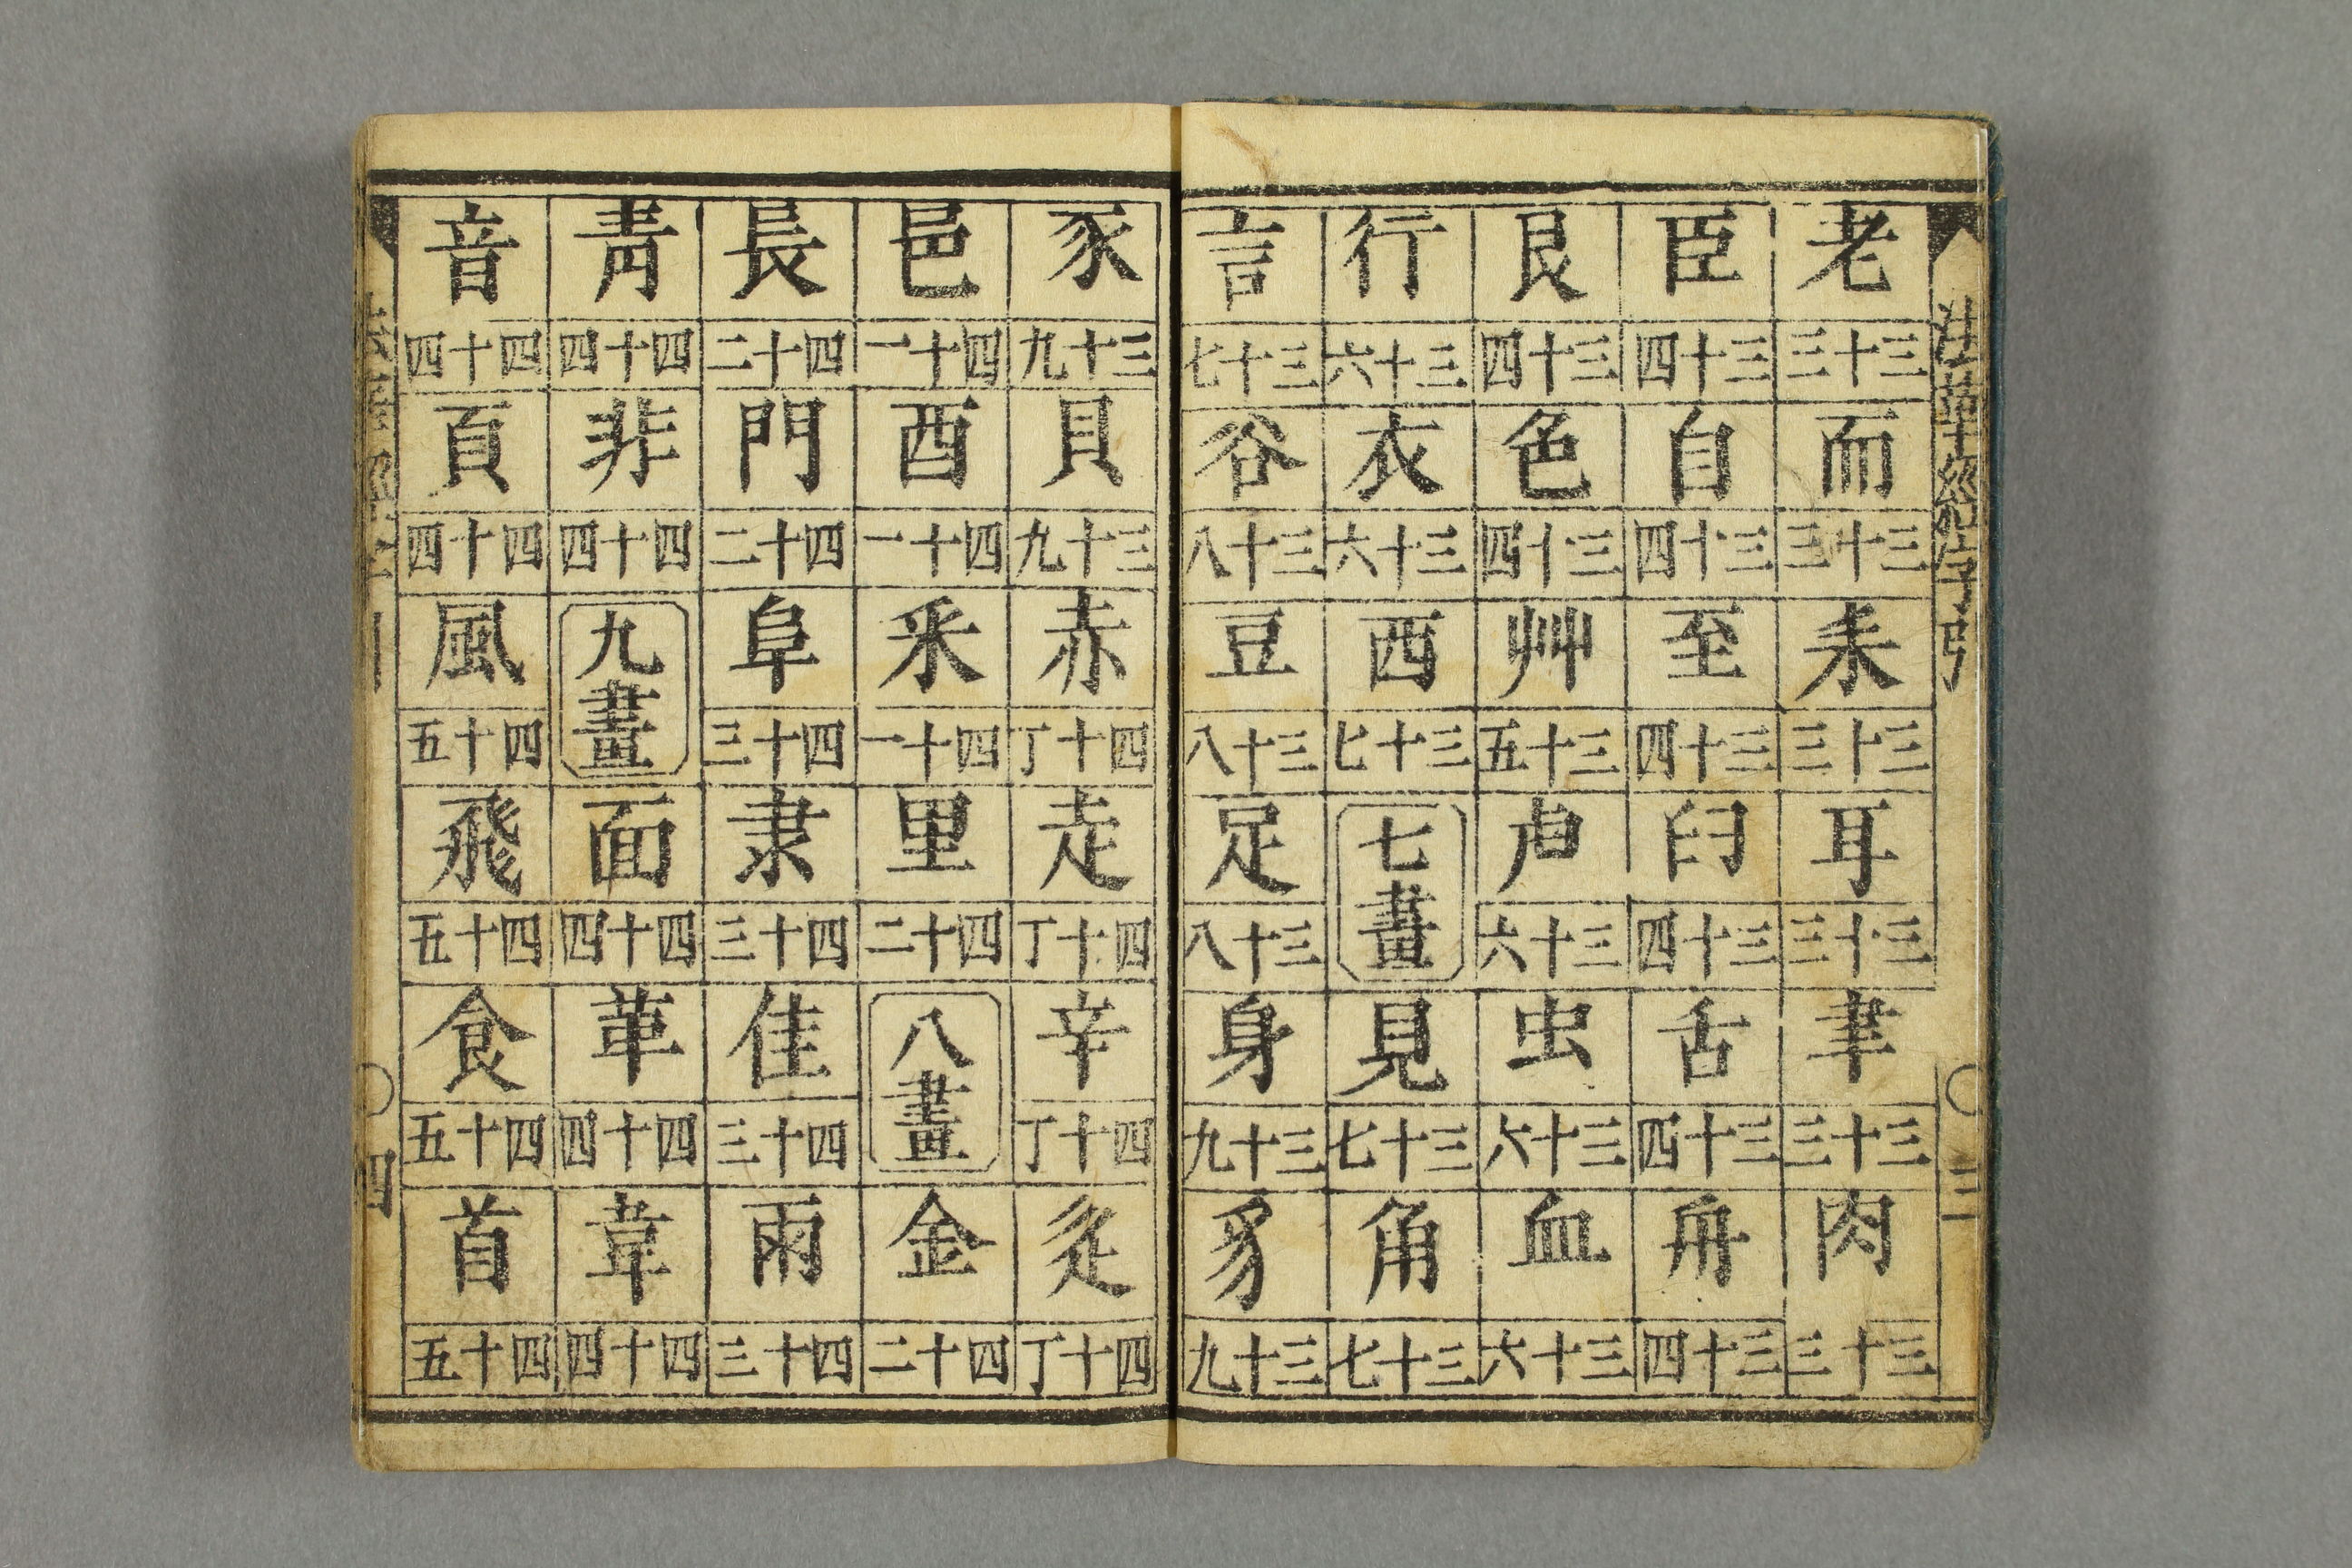 法華經字引 三
老 三十三 而 三十三 耒 三十三 耳 三十三 聿 三十三 肉 三十三
臣 三十四 自 三十四 至 三十四 臼 三十四 舌 三十四 舟 三十四
艮 三十四 色 三十四 艸 三十五 虍 三十六 虫 三十六 血 三十六
行 三十六 衣 三十六 西 三十七 七畫 見 三十七 角 三十七
言 三十七 谷 三十八 豆 三十八 足 三十八 身 三十九 豸 三十九
豕 三十九 貝 三十九 赤 四十丁 走 四十丁 辛 四十丁 辵 四十丁
邑 四十一 酉 四十一 釆 四十一 里 四十二 八畫 金 四十二
長 四十二 門 四十二 阜 四十三 隶 四十三 隹 四十三 雨 四十三
靑 四十四 非 四十四 九畫 面 四十四 革 四十四 韋 四十四
音 四十四 頁 四十四 風 四十五 飛 四十五 食 四十五 首 四十五
四